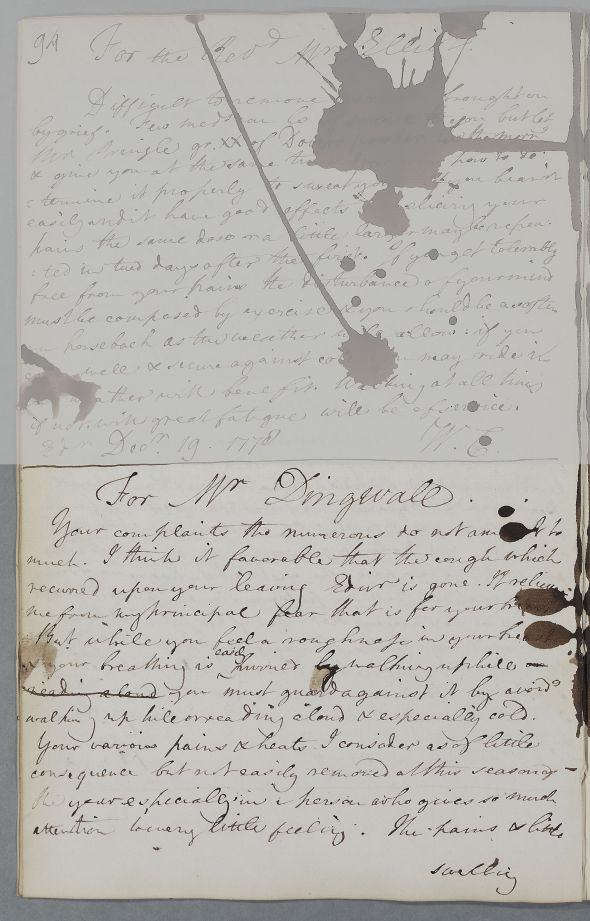 94
For the Revd Mr Elliot.
Difficult to remove brought on
by grief. Few medicines to you but let
Mr Pringle gr. XX of Dovers powder in the mornṡ
& give you at the same time how to de:
:termine it properly to sweat you If you bear it
easily and it have good effects relieving your
pains the same dose or a little larger may be repea:
:ted in two days after the first. If you get tolerably
free from your pains the disturbance of your mind
must be composed by exercise & you should be as often
on horseback as the weather will allow: if you
well & secure against cold may ride in
weather with benefit. Walking at all times
if not with great fatigue will be of service.
Edr Decr. 19. 1778 W. C.
For Mr Dingwall.
Your complaints tho numerous do not amount to
much. I think it favorable that the cough which
recurred upon your leaving Edinr is gone. It relieves
me from my principal fear that is for your
But while you feel a roughness in your
& your breathing is easily hurried by walking uphill
reading aloud you must guard against it by avoidg
walking up hill or reading aloud & especially cold.
Your various pains & heats I consider as of little
consequence but not easily removed at this season of
the year especially in a person who gives so much
attention to every little feeling. The pains & little
swelling